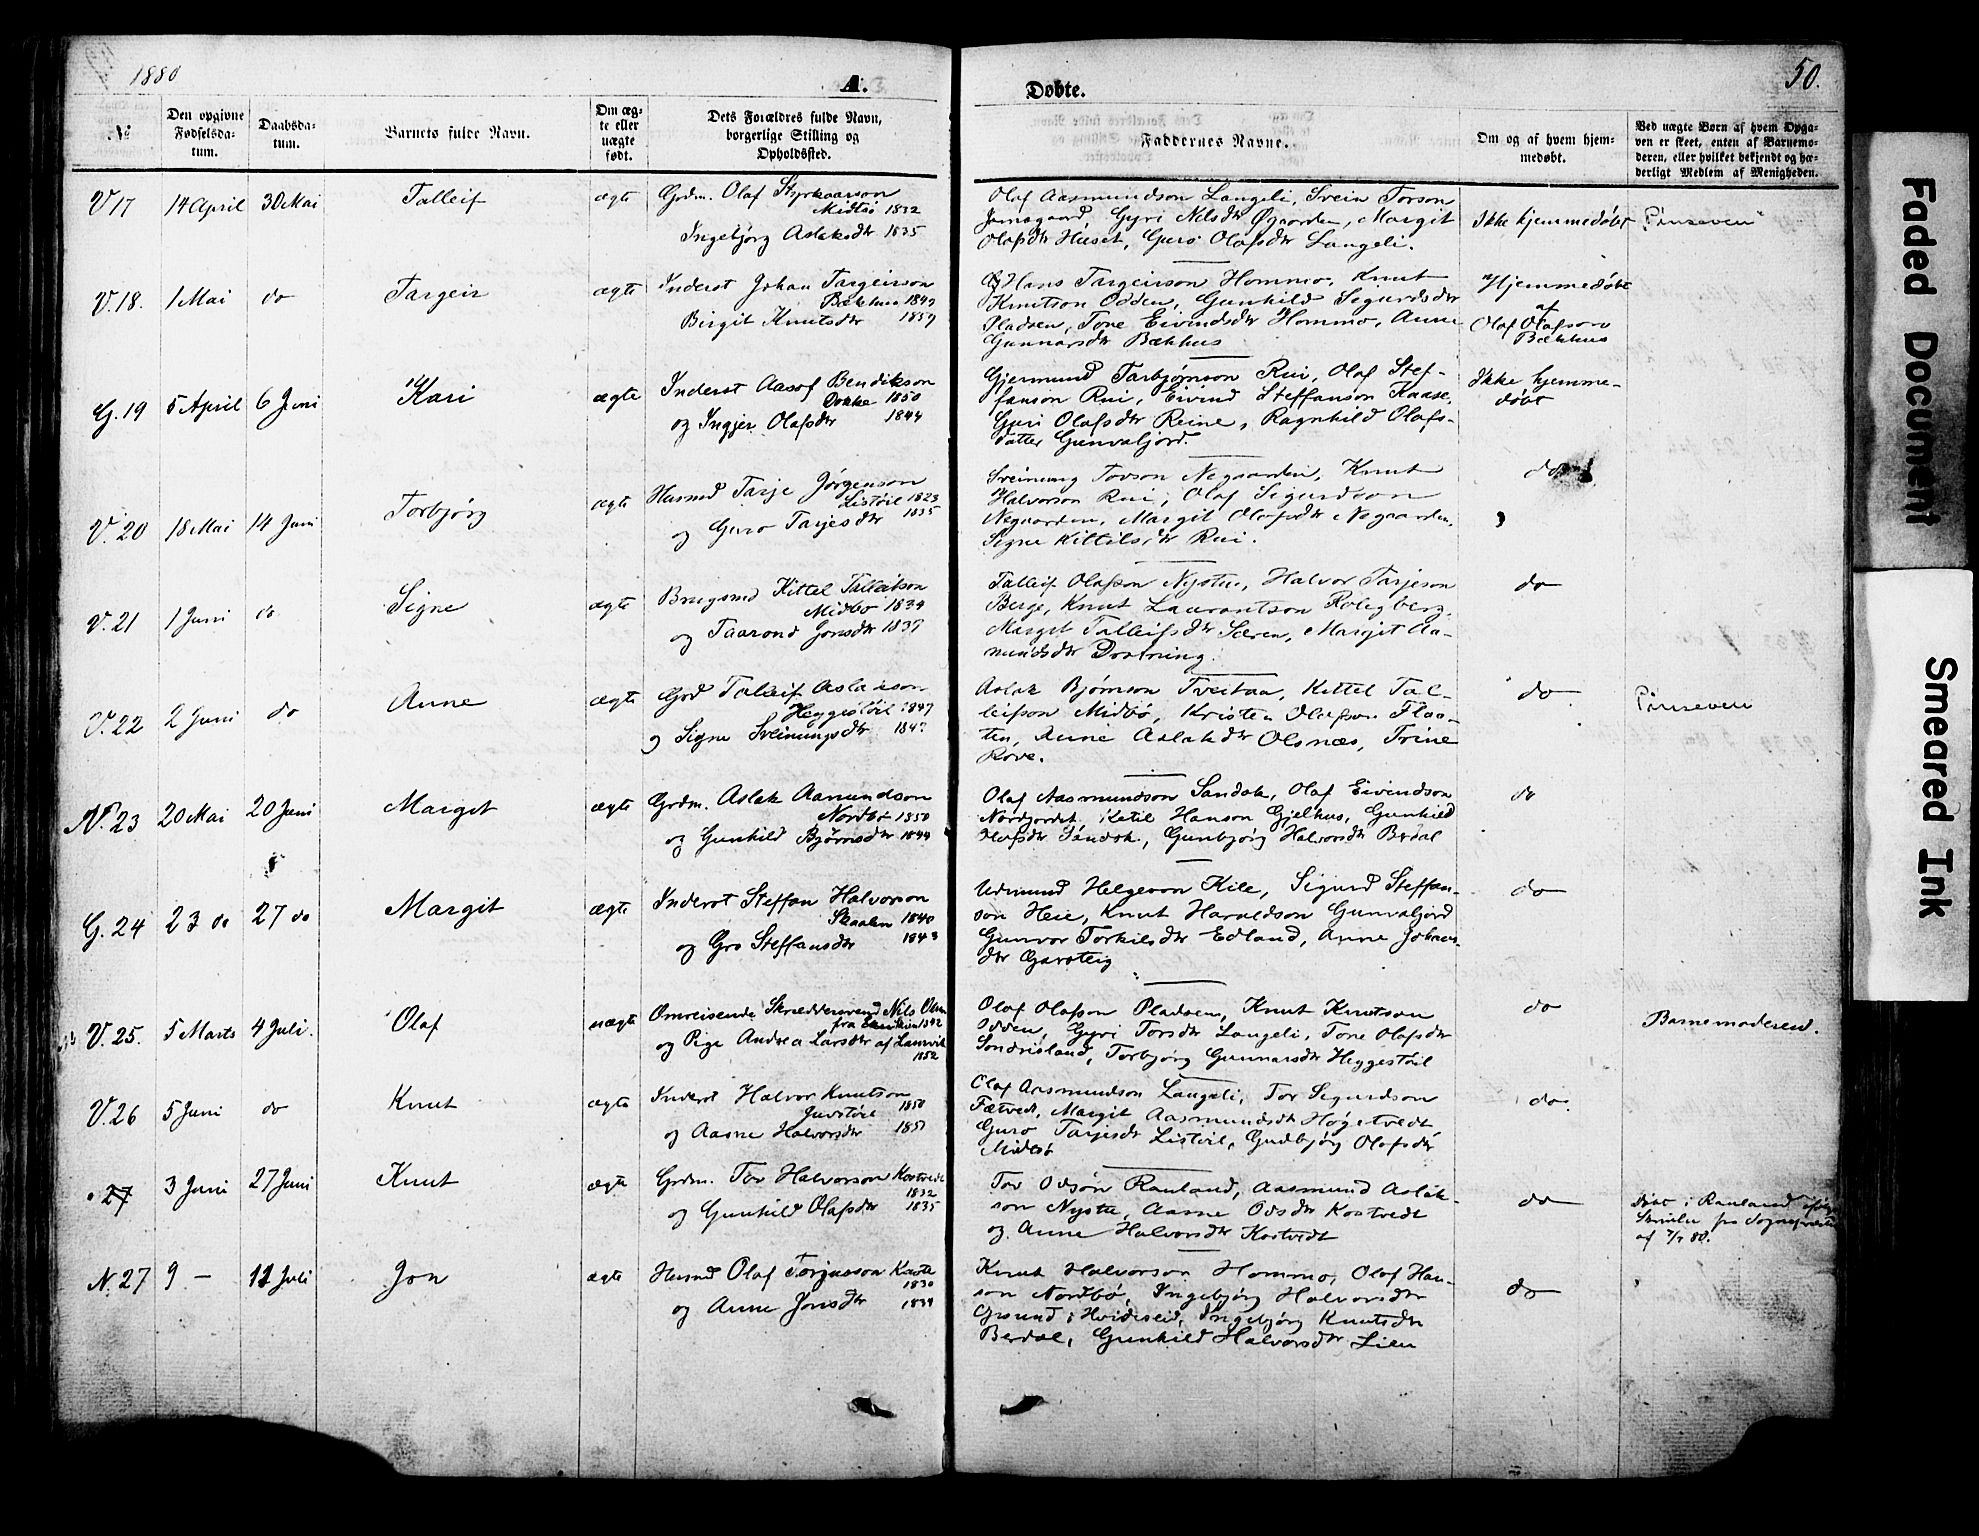 1880
A.
Døbte.
50.
No
Den opgivne Fødselsda-tum.
Daabsda-tum.
Barnets fulde Navn.
Om æg-te eller uægte født.
Dets Forældres fulde Navn, borgerlige Stilling og Opholdssted.
Faddernes Navne.
Om og af hvem hjem-medøbt.
Ved uægte Børn af hvem Opga-ven er skeet, enten af Barnemo-deren, eller hvilket bekjendt og hæ-derligt Medlem af Menigheden.
V 17 14 April 30 Mai Talleif ægte
Grdm. Olaf Styrkaarson
Midtbø 1832
Ingebjørg Aslaksdtr 1835
Olaf Aasmundson Langeli, Svein Torson
Gyri Nilsdtr Øgaarden, Margit
Olafsdtr Huset, Guro Olafsdtr Langeli.
Ikke hjemmedøbt
V. 18. 1 Mai do Targeir ægte
Inderst Johan Targeirson
Bækhus
Birgit Knutsdtr
Hans Targeirson Hommo, Knut
Knutson Odden, Gunhild Sigurdsdtr
Pladsen, Tone Eivindsdtr Hommo, Anne
Gunnarsdtr Bækhus
Hjemmedøbt
af
Olaf Olafson
Bækhus
G. 19 5 April 6 Juni Kari ægte
Inderst Aasof Bendikson
Dokke 1850
og Ingjer Olafsdtr 1844
Gjermund Tarbjørnson Rui, Olaf Stef-
fanson Rui, Eivind Steffanson Kaase,
Gyri Olafsdtr Reine, Ragnhild Olafs-
datter Gunvaljord.
Ikke hjemme-
døbt
V. 20 18 Mai 14 Juni Torbjørg ægte
Husmd Tarje Jørgenson
Listøil 1823
og Guro Tarjesdtr 1835
Sveinung Tovson Negaarden, Knut
Halvorson Rui, Olaf Sigurdson
Negaarden, Margit Olafsdtr Negaarden,
Signe Kittilsdtr Rui.
do
V. 21 1 Juni do Signe ægte
Brugsmd Kittel Talleifson
Midbø 1834
og Taarond Jonsdtr 1837
Talleif Olafson Nystu, Halvor Tarjeson
Berge, Knut Laurantson Rolegberg,
Margit Talleifsdtr Særen, Margit Aa-
mundsdtr Drotning.
do
V. 22 2 Juni do Anne ægte
Grd Talleif Aslakson
Heggestøil 1847
og Signe Sveinungsdtr
Aslak Bjørnson Tveitaa, Kittel Tal-
leifson Midbø, Kristen Olafson Flaa-
ten, Anne Aslakdtr Olsnæs, Trine
Rove.
do
N. 23 20 Mai 20 Juni Margit ægte
Grdm. Aslak Aamundson
Nordbø 1850
og Gunhild Bjørnsdtr 1844
Olaf Aasmundson Sandok, Olaf Eivindson
Nordjordet, Ketil Hanson Gjelhus, Gunhild
Olafsdtr Sandok, Gunbjørg Halvorsdtr Berdal
do
G. 24 23 do 27 do Margit ægte
Inderst Steffan Halvorson
Skaalen 1840
og Gro Steffansdtr 1843
Helgeson Kile, Sigurd Steffan-
son Heie, Knut Haraldson Gunvaljord
Gunvor Torkilsdtr Edland, Anne Johans-
dtr Garsteig
do
V. 25. 5 Marts 4 Juli. Olaf uægte
Omreisende Skræddersvend Nils Olsen
fra
og Pige Andrea Larsdtr af Laurvik
1852
Olaf Olafson Pladsen, Knut Knutson
Odden, Gyri Torsdtr Langeli, Tone Olafsdtr
Sondresland, Torbjørg Gunnarsdtr Heggestøil
do
Barnemoderen.
V. 26 5 Juni do Knut ægte
Inderst Halvor Knutson
1850
og Aasne Halvorsdtr
Olaf Aasmundson Langeli, Tor Sigurdson
Fætvedt, Margit Aasmundsdtr Høgetvedt,
Guro Tarjesdtr Listøil, Gudbjørg Olafsdtr
Midtbø
do
27 3 Juni 27 Juni Knut ægte
Grdm. Tor Halvorson Kostvedt
1832
og Gunhild Olafsdtr 1835
Tor Odson Rauland, Aasmund Aslak-
son Nystu, Aasne Odsdtr Kostvedt
og Anne Halvorsdtr Kostvedt
do
Døbt i Rauland ifølge
Skrivelse fra Sognepræsten
af 7/7 80.
N. 27 9 - 11 Juli Jon ægte
Husmd Olaf Torjusson
1830
og Anne Jonsdtr
Knut Halvorson Hommo, Olaf Han-
son Nordbø, Ingebjørg Halvorsdtr
Grsund i Hvideseid, Ingebjørg Knutsdtr
Berdal, Gunhild Halvorsdtr Lien
do
Faded Document
Smeared Ink